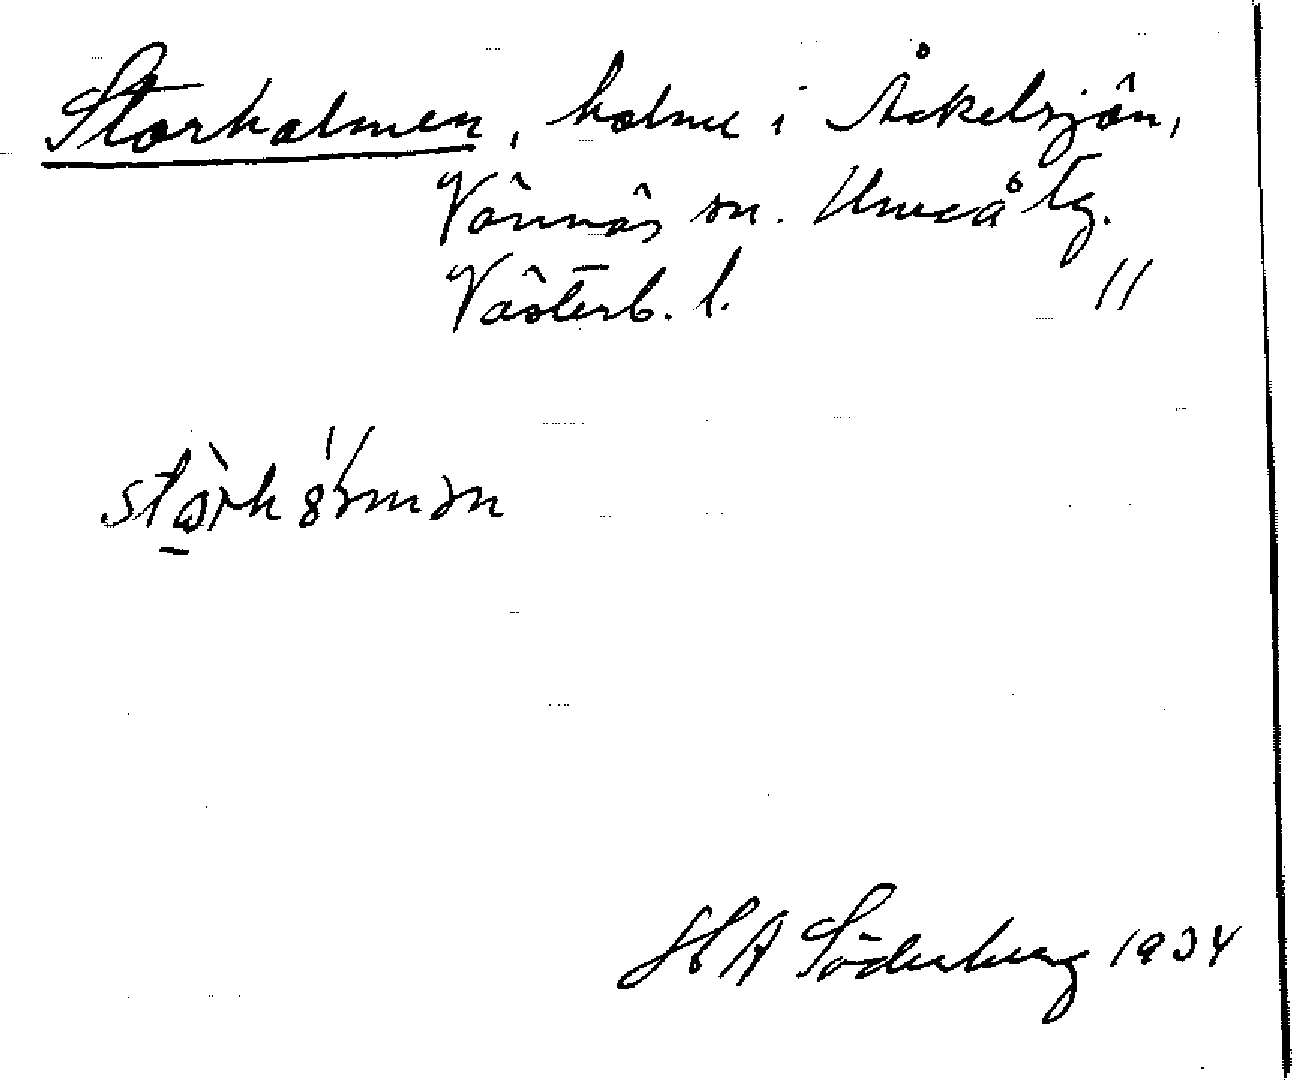 Storholmen, holme i Åckelsjön,
Vännäs sn. Umeå tg.
Västerb. l. 11
H A Söderberg 1934